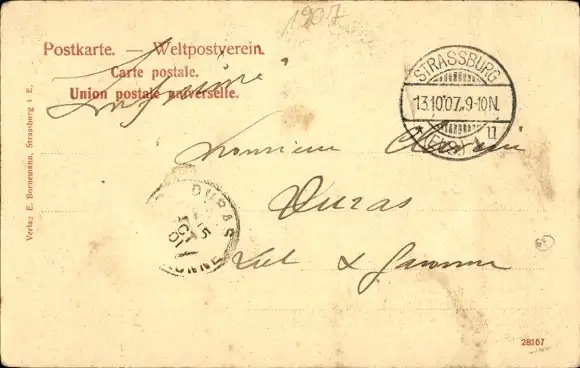 1907
Postkarte. — Weltpostverein.
Carte postale.
Union postale universelle.
Imprimé
STRASSBURG
13.10.07.9-10N.
* (ELS.) u
Monsieur
DURAS
15
OCT
07
Duras
Lot & Garonne
Verlag E. Bornemann, Strassburg i. E.
28167